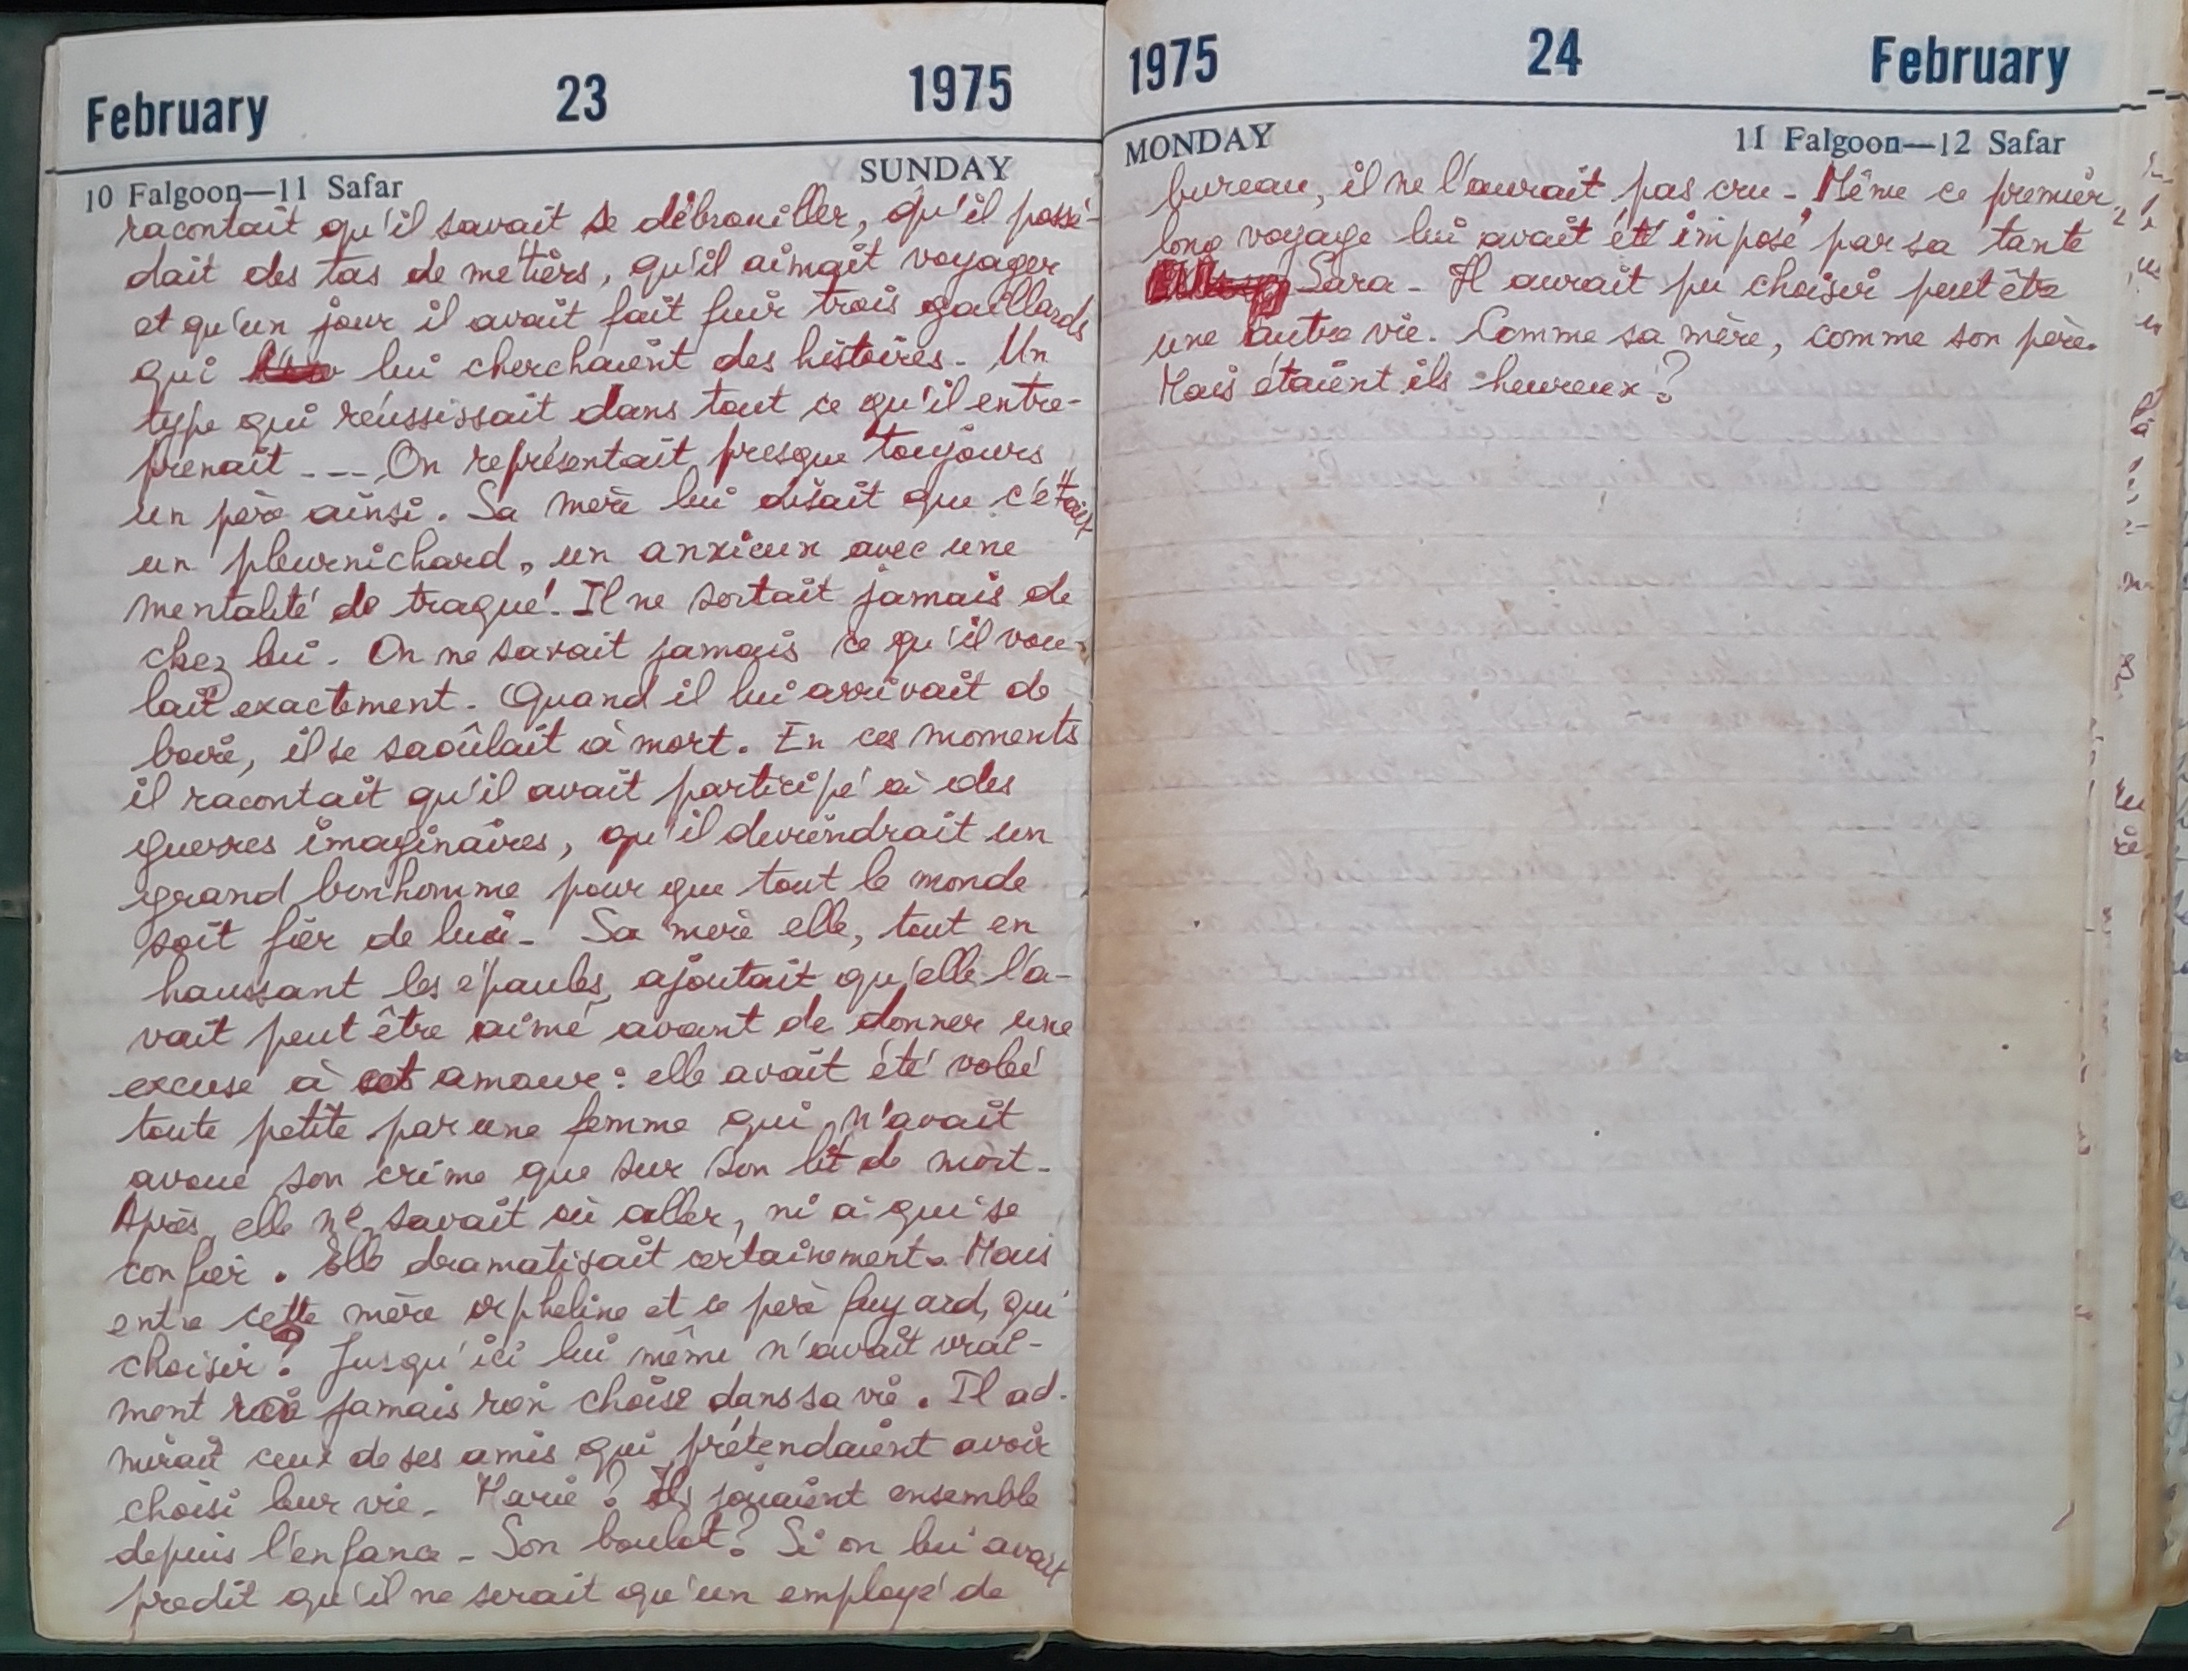 February 23 1975
SUNDAY
10 Falgoon—11 Safar
racontait qu'il savait se débrouiller, qu'il possé-
dait des tas de métiers, qu'il aimait voyager
et qu'un jour il avait fait fuir trois gaillards
qui lui cherchaient des histoires - Un
type qui réussissait dans tout ce qu'il entre-
prenait --- On représentait presque toujours
un père ainsi. Sa mère lui disait que c'était
un pleurnichard, un anxieux avec une
mentalité de traqué. Il ne sortait jamais de
chez lui. On ne savait jamais ce qu'il vou-
lait exactement. Quand il lui arrivait de
boire, il se saoûlait à mort. En ces moments
il racontait qu'il avait participé à des
guerres imaginaires, qu'il deviendrait un
grand bonhomme pour que tout le monde
soit fier de lui - Sa mère elle, tout en
haussant les épaules, ajoutait qu'elle l'a-
vait peut être aimé avant de donner une
excuse à cet amour : elle avait été volée
toute petite par une femme qui n'avait
avoué son crime que sur son lit de mort -
Après, elle ne savait où aller, ni à qui se
confier. Elle dramatisait certainement. Mais
entre cette mère orpheline et ce père fuyard, qui
choisir ? Jusqu'ici lui même n'avait vrai-
ment jamais rien choisi dans sa vie. Il ad-
mirait ceux de ses amis qui prétendaient avoir
choisi leur vie - Marie ? Ils jouaient ensemble
depuis l'enfance - Son boulot ? Si on lui avait
prédit qu'il ne serait qu'un employé de
1975 24 February
MONDAY 11 Falgoon—12 Safar
bureau, il ne l'aurait pas cru - Même ce premier
long voyage lui avait été imposé par sa tante
Sara - Il aurait pu choisir peut être
une autre vie. Comme sa mère, comme son père.
Mais étaient ils heureux ?